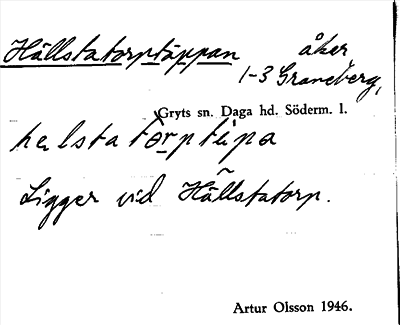 Hällstatorptäppan åker
1-3 Graneberg,
Gryts sn. Daga hd. Söderm. l.
hälstatòrptäpa
Ligger vid Hällstatorp.
Artur Olsson 1946.